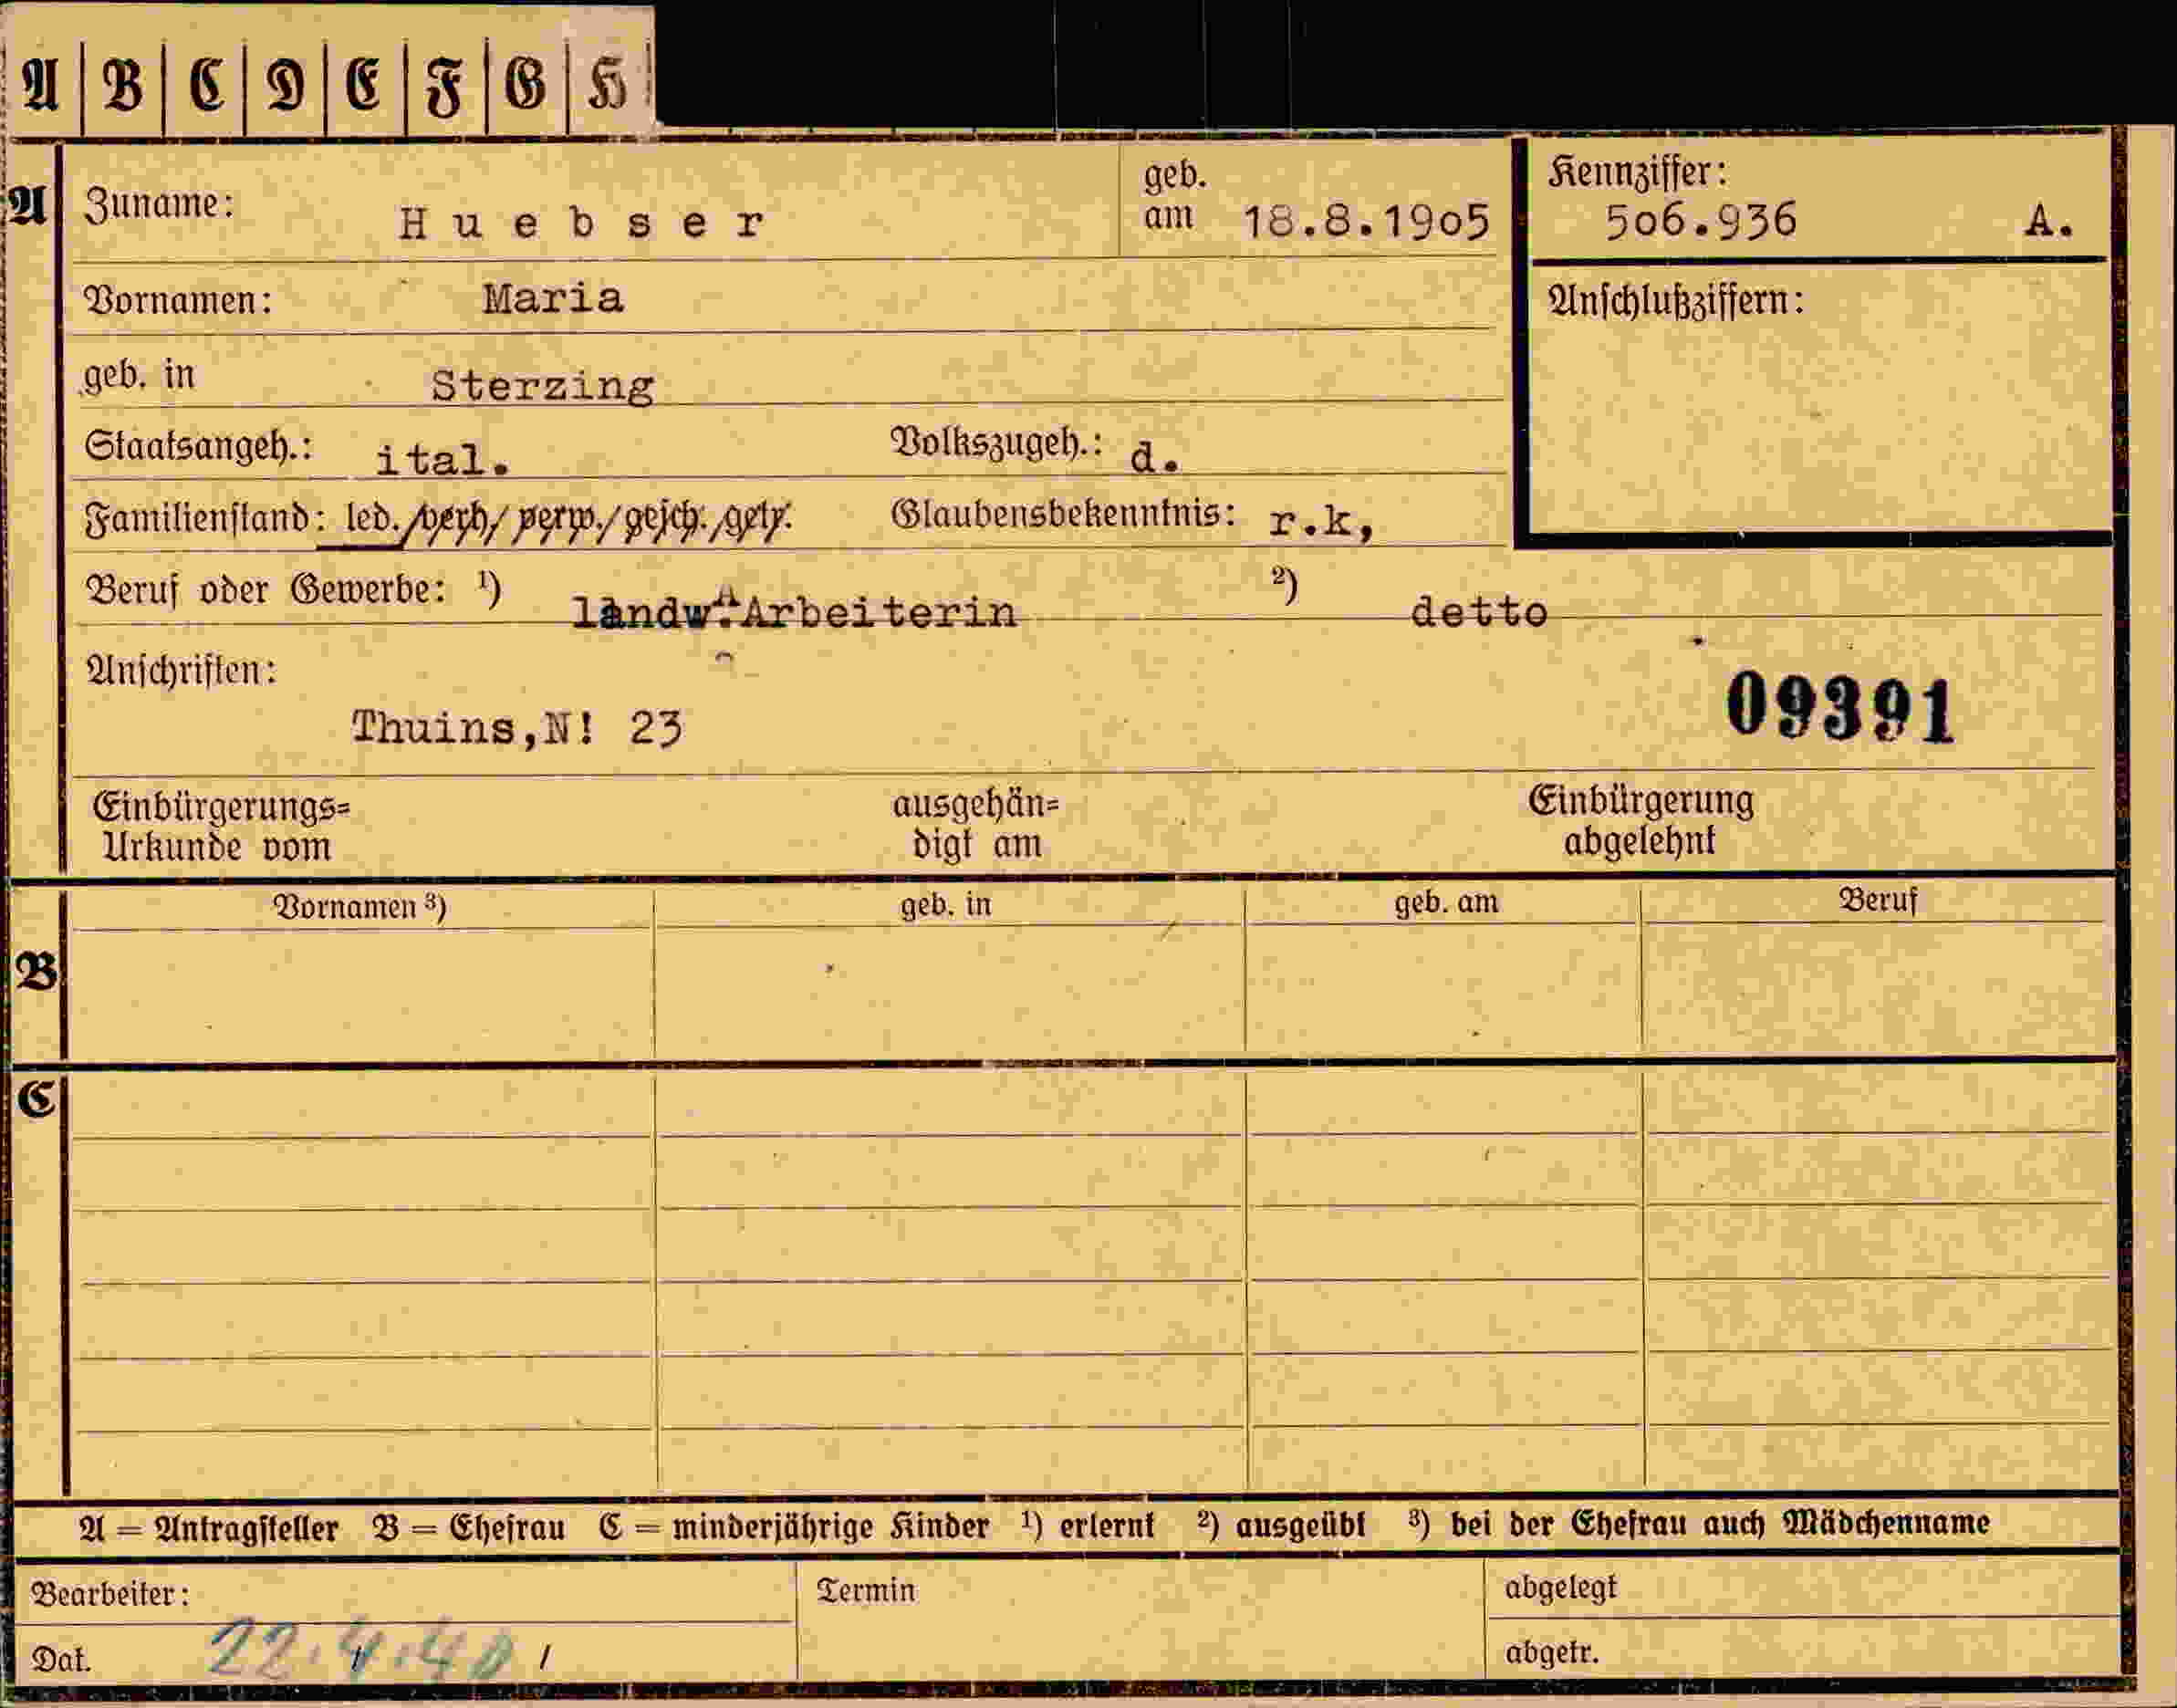 A | B | C | D | E | F | G | H
A
Zuname: Huebser geb. am 18.8.1905
Kennziffer: 506.936 A.
Vornamen: Maria
Anschlußziffern:
geb. in Sterzing
Staatsangeh.: ital. Volkszugeh.: d.
Familienstand: led./verh/verw./gesch./getr. Glaubensbekenntnis: r.k,
Beruf oder Gewerbe: ¹) landw. Arbeiterin ²) detto
Anschriften:
Thuins,N! 23
09391
Einbürgerungs=
Urkunde vom
ausgehän=
digt am
Einbürgerung
abgelehnt
B
Vornamen ³) geb. in geb. am Beruf
C
A = Antragsteller B = Ehefrau C = minderjährige Kinder ¹) erlernt ²) ausgeübt ³) bei der Ehefrau auch Mädchenname
Bearbeiter: Termin abgelegt
Dat. 22.4.40 / abgetr.